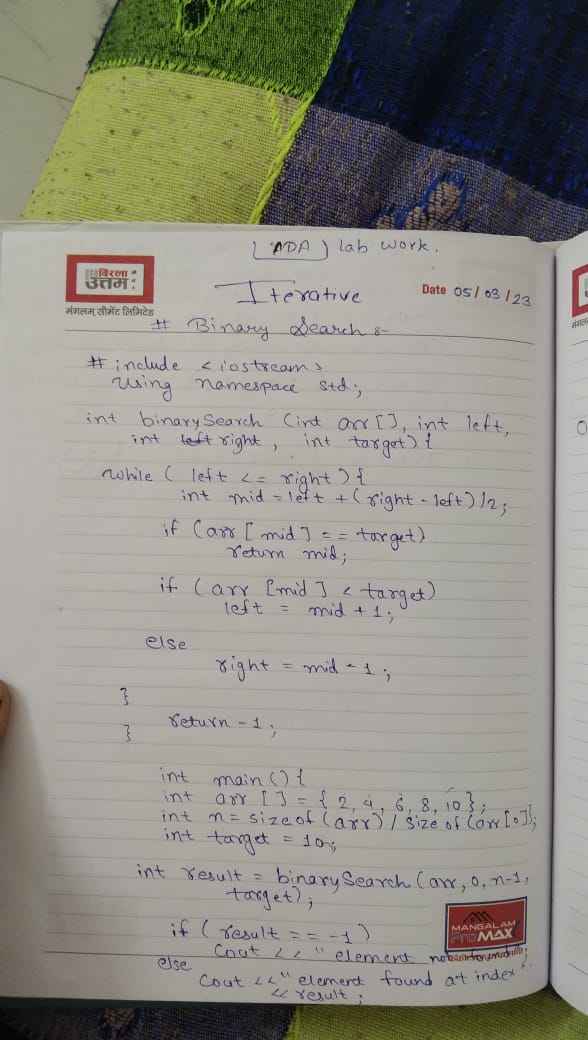 (ADA) lab work.
बिरला
उत्तम
मंगलम् सीमेंट लिमिटेड
Iterative
Date 05/03/23
# Binary Search :-
# include <iostream>
using namespace std;
int binarySearch (int arr [], int left,
int left right, int target) {
while ( left <= right ) {
int mid = left + (right - left) /2;
if (arr [mid] == target)
return mid;
if (arr [mid] < target)
left = mid + 1;
else
right = mid - 1;
}
return -1;
}
int main () {
int arr [] = { 2, 4, 6, 8, 10 };
int n = size of (arr) / size of (arr [0]);
int target = 10;
int result = binarySearch (arr, 0, n-1,
target);
if ( result == -1 )
MANGALAM
PROMAX
Cout << " element not
else
Cout << " element found at index "
<< result ;